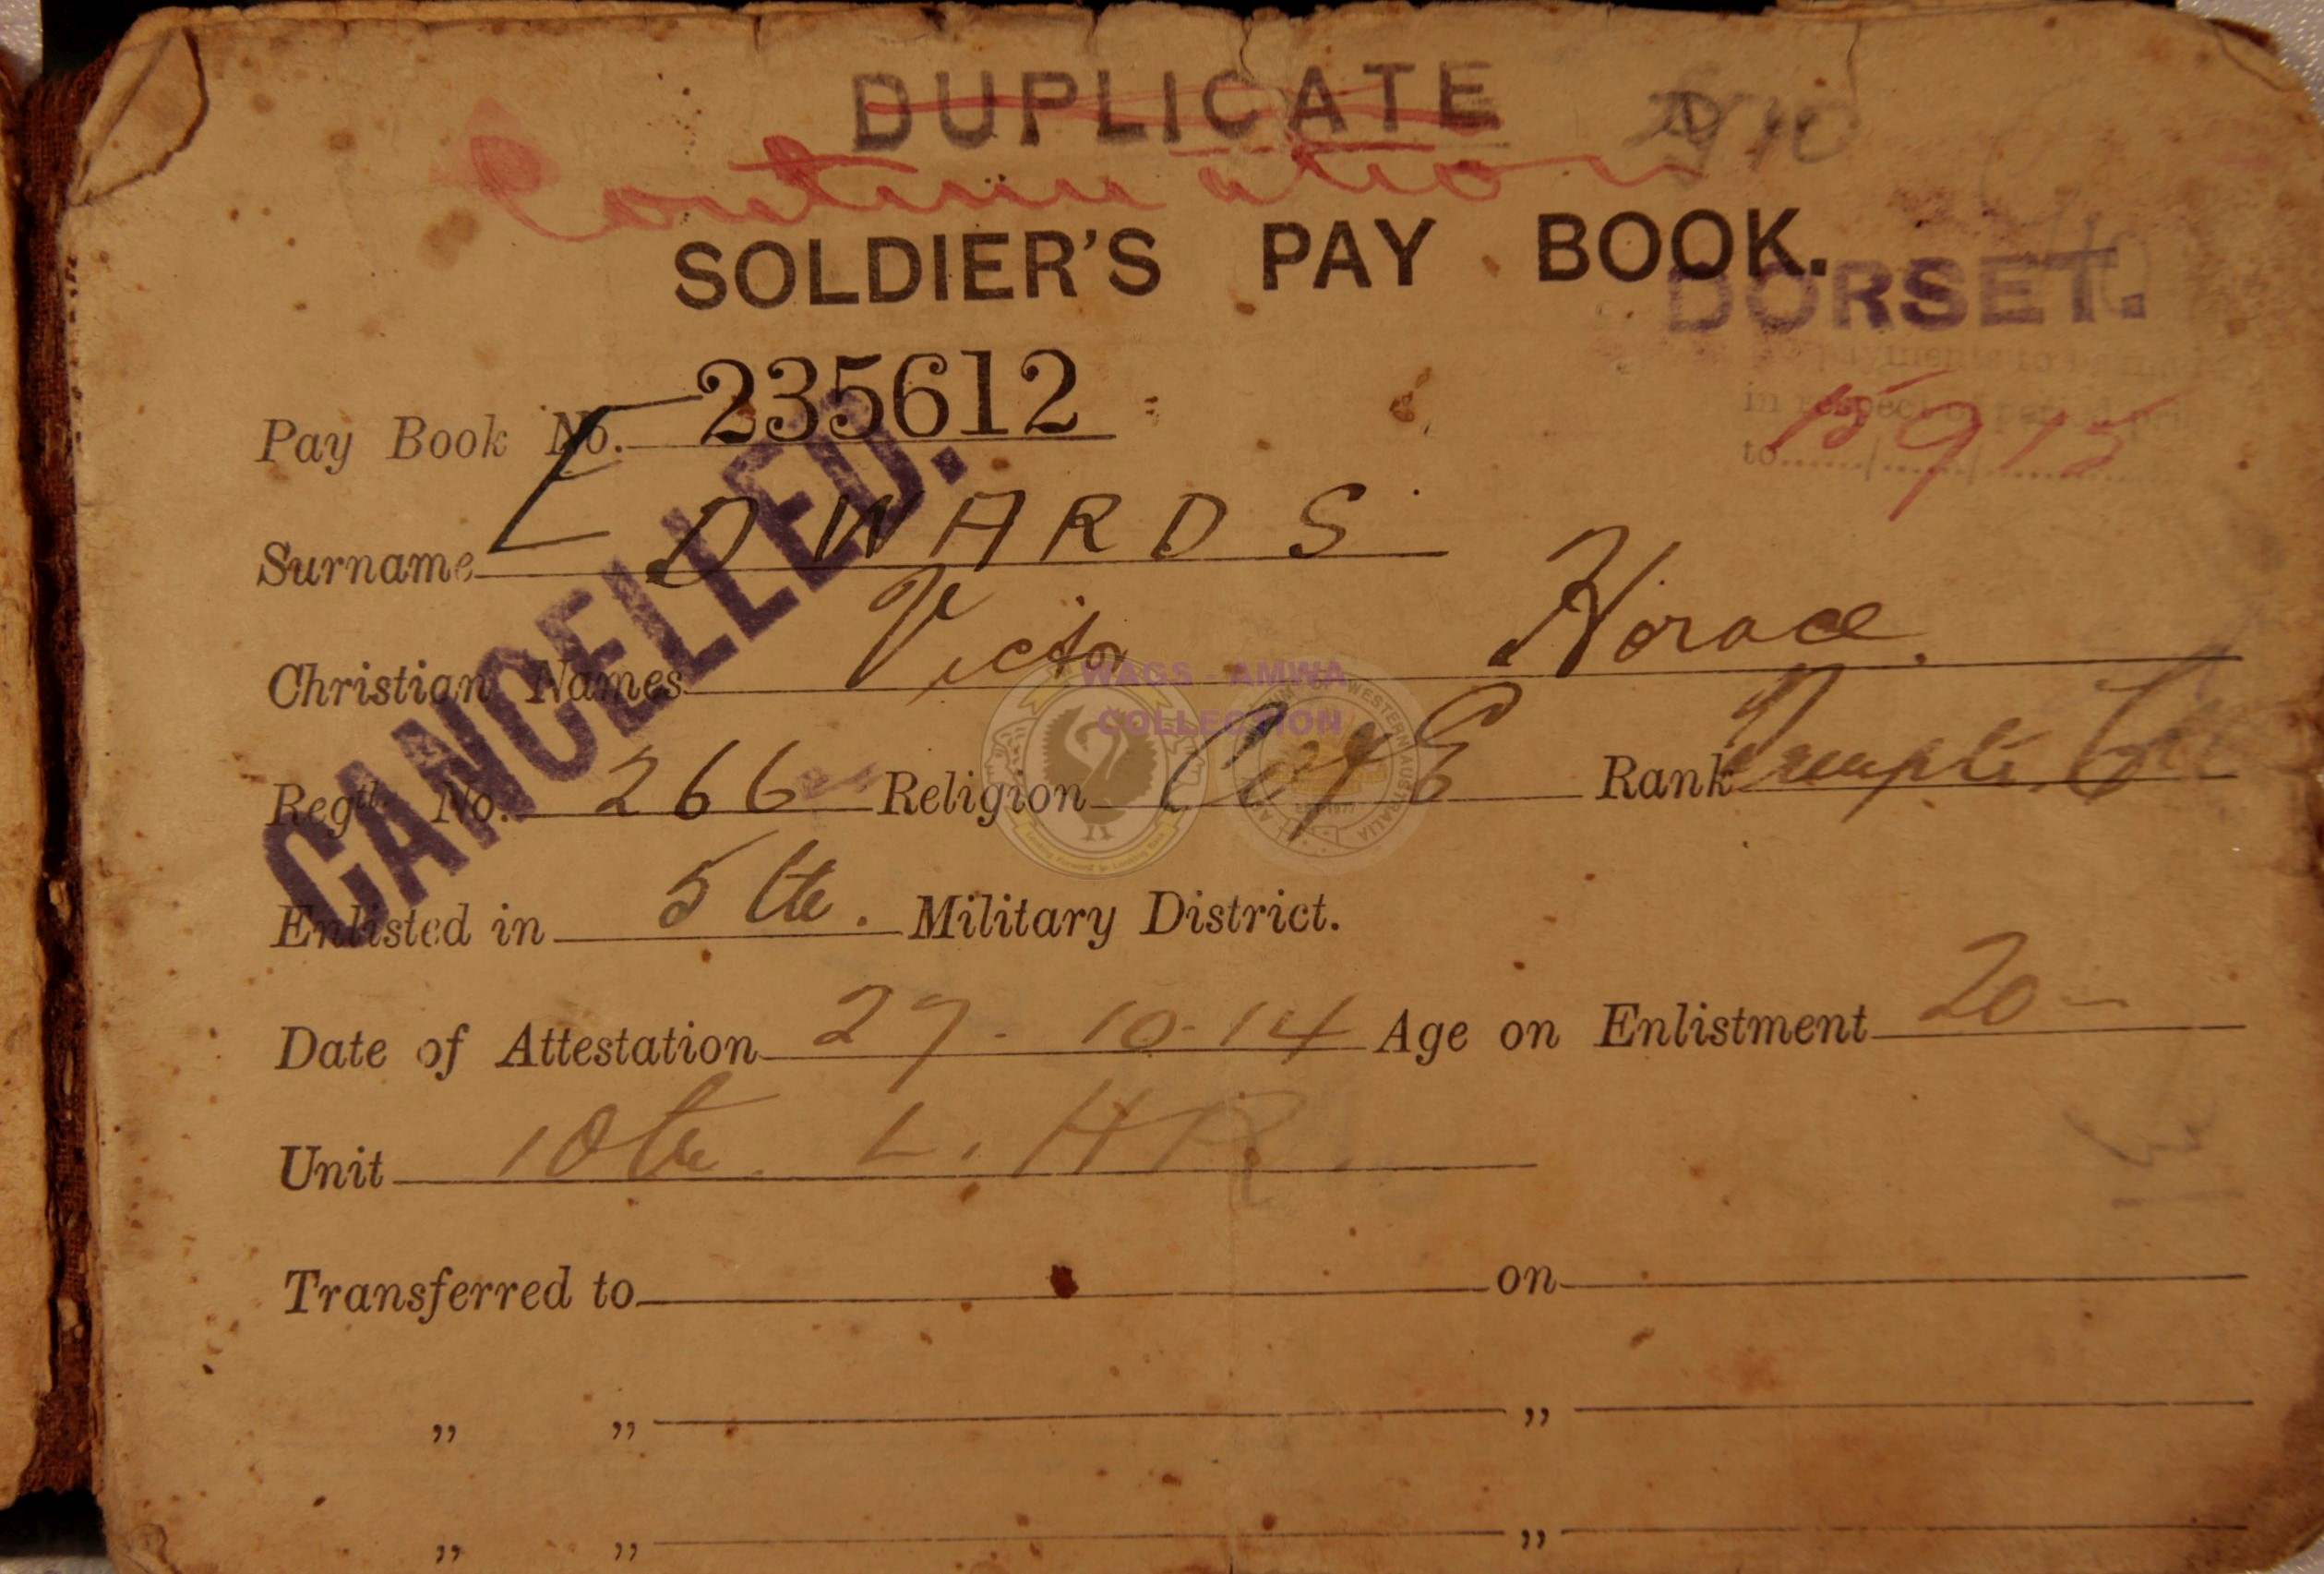 DUPLICATE
Continuation
SOLDIER'S PAY BOOK.
DORSET.
payments to
in respect of period
to....../....../............
15 9 15
Pay Book No. 235612
Surname EDWARDS
Christian Names Victor Horace.
CANCELLED.
WAGS - AMWA
COLLECTION
Regtl. No. 266 Religion C of E Rank
Enlisted in 5th. Military District.
Date of Attestation 27-10-14 Age on Enlistment 20-
Unit 10th. L.HR.
Transferred to on
" " "
" " "